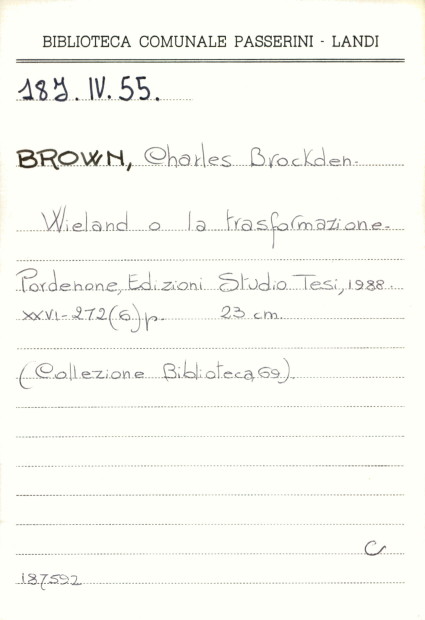 BIBLIOTECA COMUNALE PASSERINI - LANDI
18J. IV. 55.
BROWN, Charles Brockden.
Wieland o la trasformazione.
Pordenone, Edizioni Studio Tesi, 1988.
XXVI-272(6)p. 23 cm.
(Collezione Biblioteca, 69).
C
187592